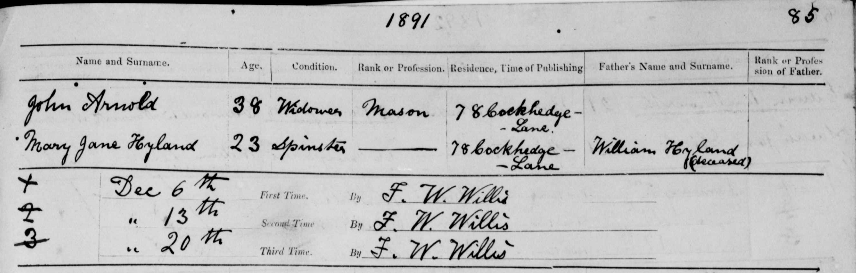 1891 85
Name and Surname. Age. Condition. Rank or Profession. Residence, Time of Publishing Father's Name and Surname. Rank or Profes sion of Father.
John Arnold 38 Widower Mason 78 Cockhedge - Lane.
Mary Jane Hyland 23 Spinster —— 78 Cockhedge - Lane William Hyland (deceased)
1 Dec 6th First Time. By F. W. Willis
2 " 13th Second Time By F. W. Willis
3 " 20th Third Time. By F. W. Willis